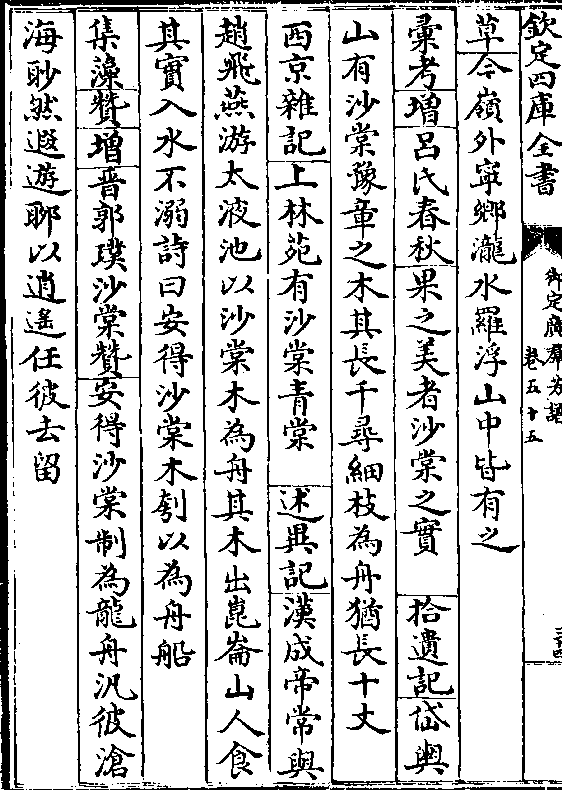 欽定四庫全書
御定廣羣芳譜
卷五十五
草今嶺外寧鄉瀧水羅浮山中皆有之
彚考增呂氏春秋果之美者沙棠之實 拾遺記岱輿
山有沙棠豫章之木其長千尋細枝為舟猶長十丈
西京雜記上林苑有沙棠青棠 述異記漢成帝常與
趙飛燕游太液池以沙棠木為舟其木出崑崙山人食
其實入水不溺詩曰安得沙棠木刳以為舟船
集藻贊增晉郭璞沙棠贊安得沙棠制為龍舟汎彼滄
海眇然遐遊聊以逍遙任彼去留